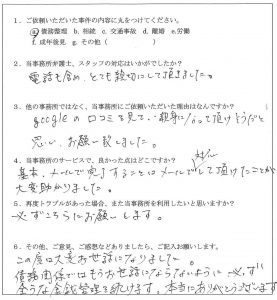 1．ご依頼いただいた事件の内容に丸をつけてください。
a 債務整理 b. 相続 c. 交通事故 d. 離婚 e. 労働
f. 成年後見 g. その他（　　　　　）
2．当事務所弁護士、スタッフの対応はいかがでしたか？
電話も含め、とても親切にして頂きました。
3．他の事務所ではなく、当事務所にご依頼いただいた理由はなんですか？
googleの口コミを見て、親身になって頂けそうだと
思い、お願い致しました。
4．当事務所のサービスで、良かった点はどこですか？
基本、メールで完了することはメールで対応して頂けたことが
大変助かりました。
5．再度トラブルがあった場合、また当事務所を利用したいと思いますか？
必ずこちらにお願いします。
6．その他、ご意見、ご感想などありましたら、ご記入お願いします。
この度は大変お世話になりました。
債務関係ではもうお世話にならないように必ず
金銭管理を続けます。本当にありがとうございます